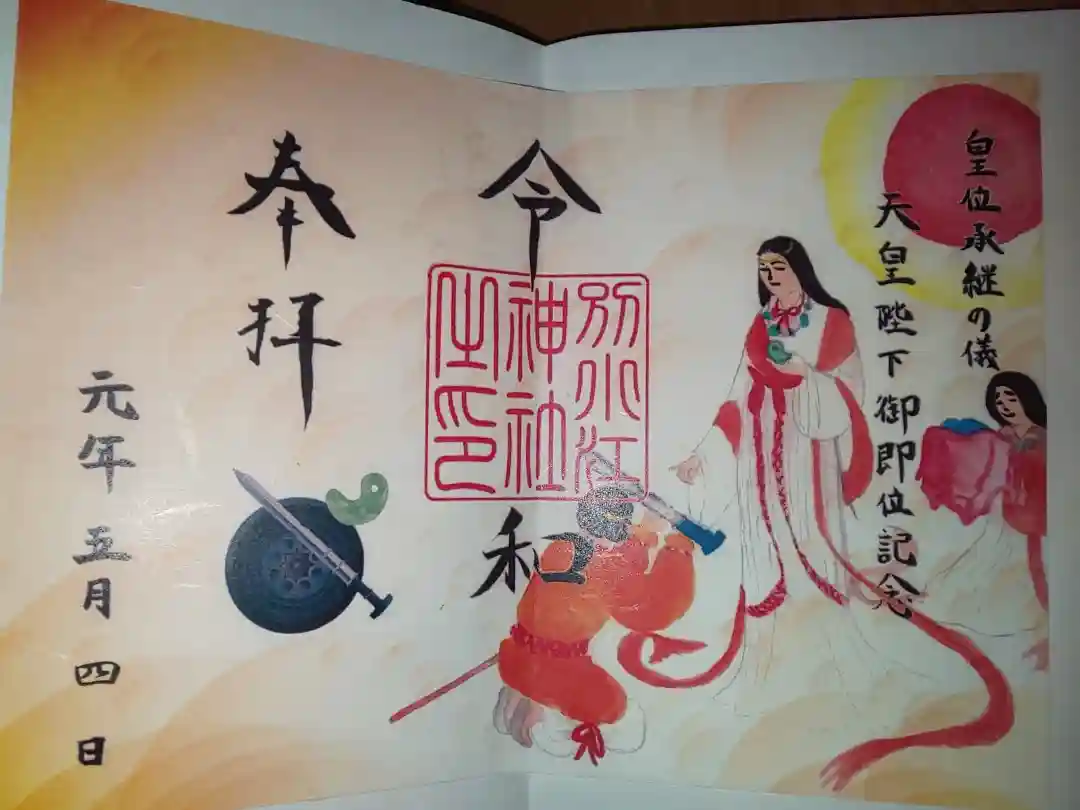 皇位承継の儀
天皇陛下御即位記念
令和
別小江
神社
之印
奉拝
元年五月四日